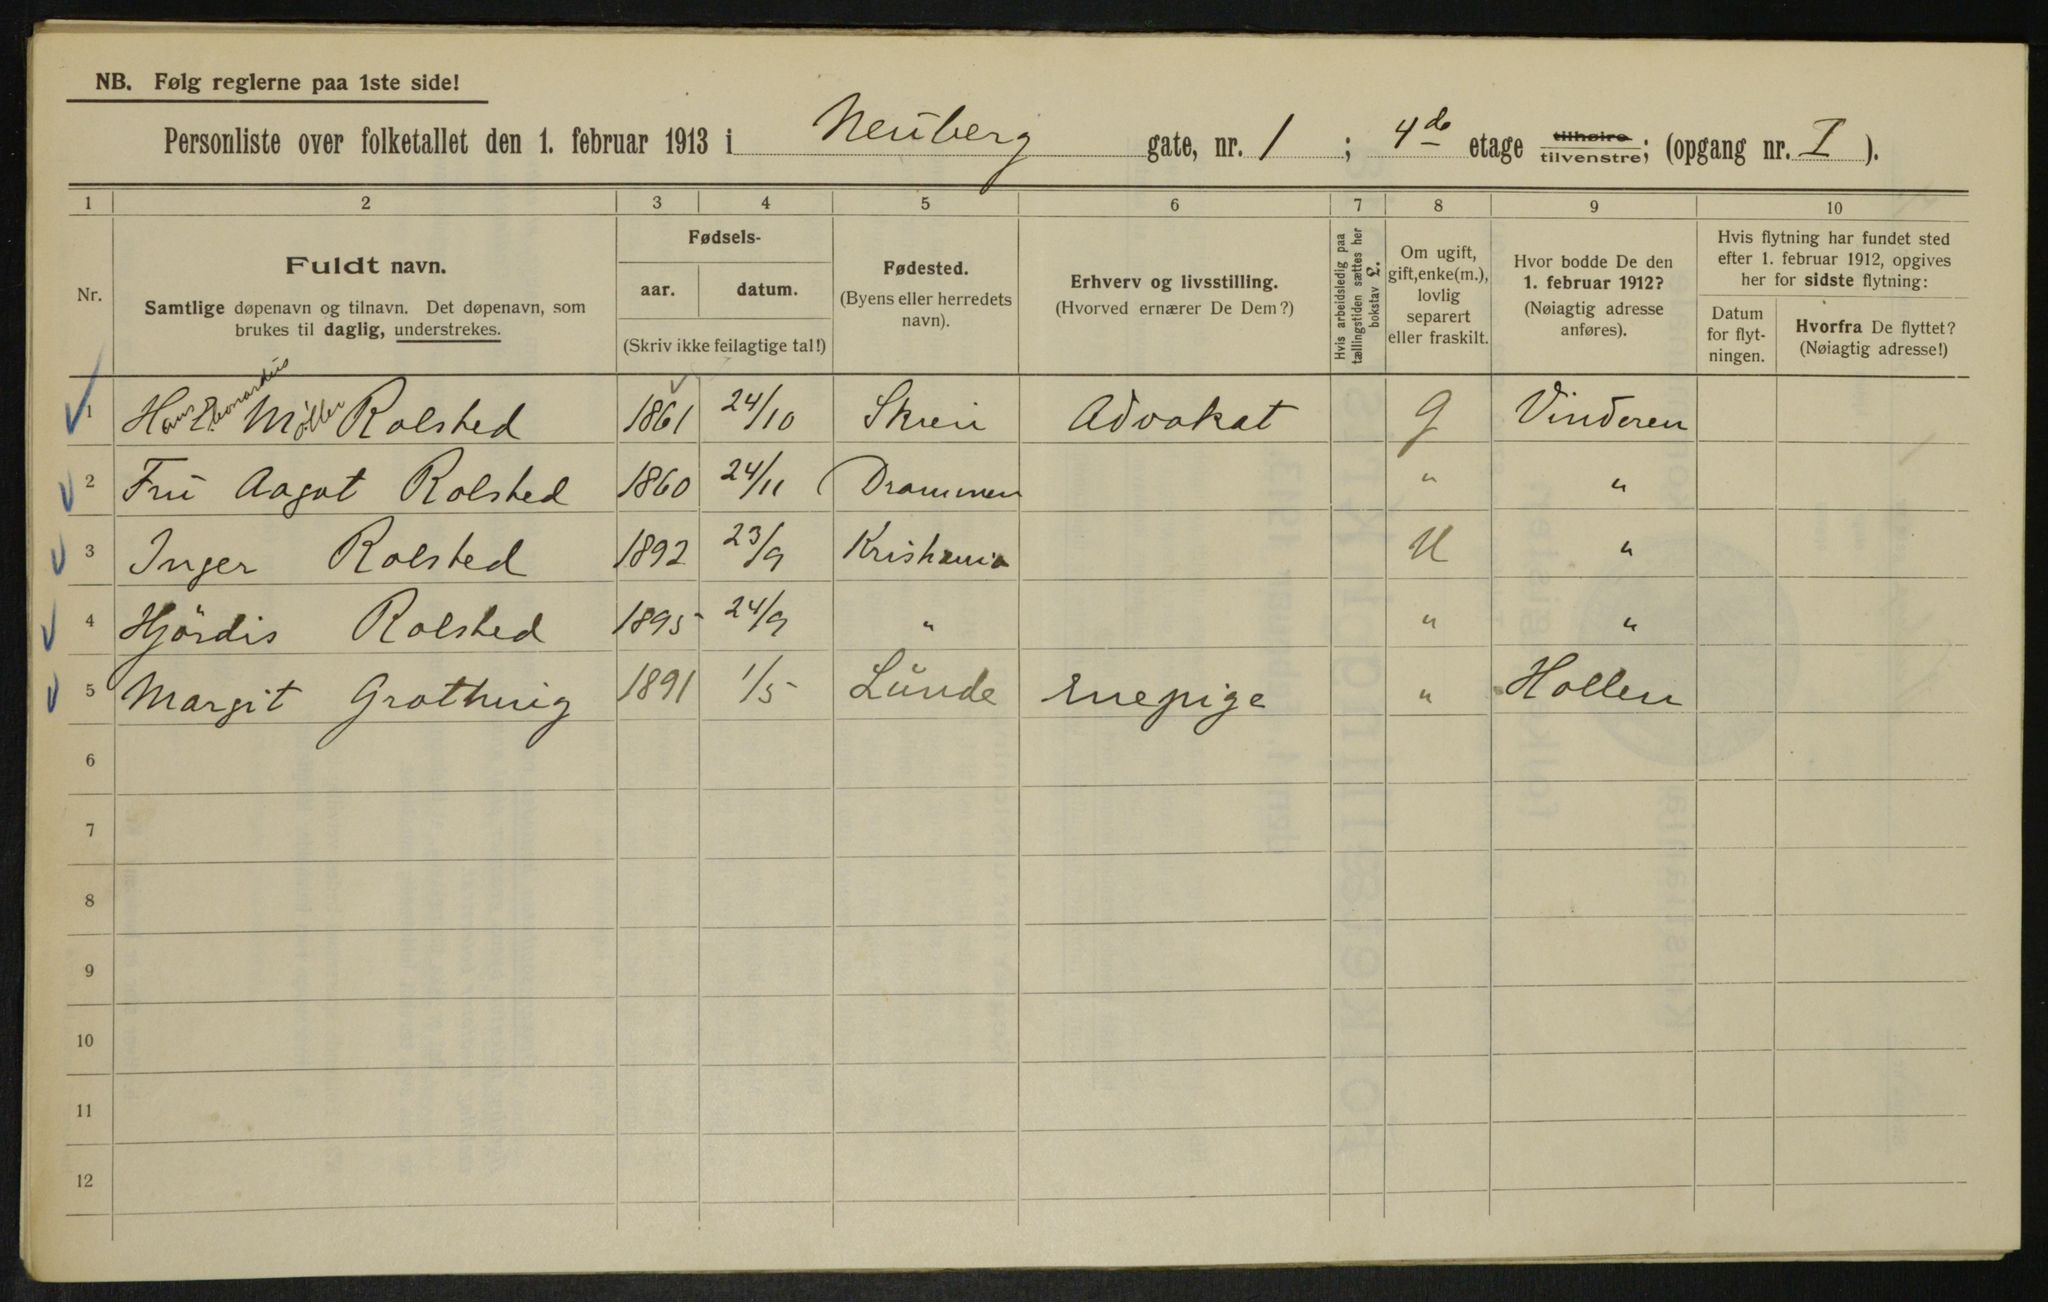 NB. Følg reglerne paa 1ste side!
Personliste over folketallet den 1. februar 1913 i Neuberg gate, nr. 1 ; 4de etage tilhøire tilvenstre; (opgang nr. I ).
1 2 3 4 5 6 7 8 9 10
Nr.
Fuldt navn.
Samtlige døpenavn og tilnavn. Det døpenavn, som
brukes til daglig, understrekes.
Fødsels-
aar. datum.
(Skriv ikke feilagtige tal!)
Fødested.
(Byens eller herredets
navn).
Erhverv og livsstilling.
(Hvorved ernærer De Dem?)
Hvis arbeidsledig paa
tællingstiden sættes her
bokstav L.
Om ugift,
gift, enke(m.),
lovlig
separert
eller fraskilt.
Hvor bodde De den
1. februar 1912?
(Nøiagtig adresse
anføres).
Hvis flytning har fundet sted
efter 1. februar 1912, opgives
her for sidste flytning:
Datum
for flyt-
ningen.
Hvorfra De flyttet?
(Nøiagtig adresse!)
1 Hans Leonardus Møller Rolsted 1861 24/10 Skien Advokat G Vinderen
2 Fru Aagot Rolsted 1860 24/11 Drammen " "
3 Inger Rolsted 1892 23/9 Kristiania U "
4 Hjördis Rolsted 1895 24/9 " " "
5 Margit Grothing 1891 1/5 Lunde Enepige " Hollen
6
7
8
9
10
11
12